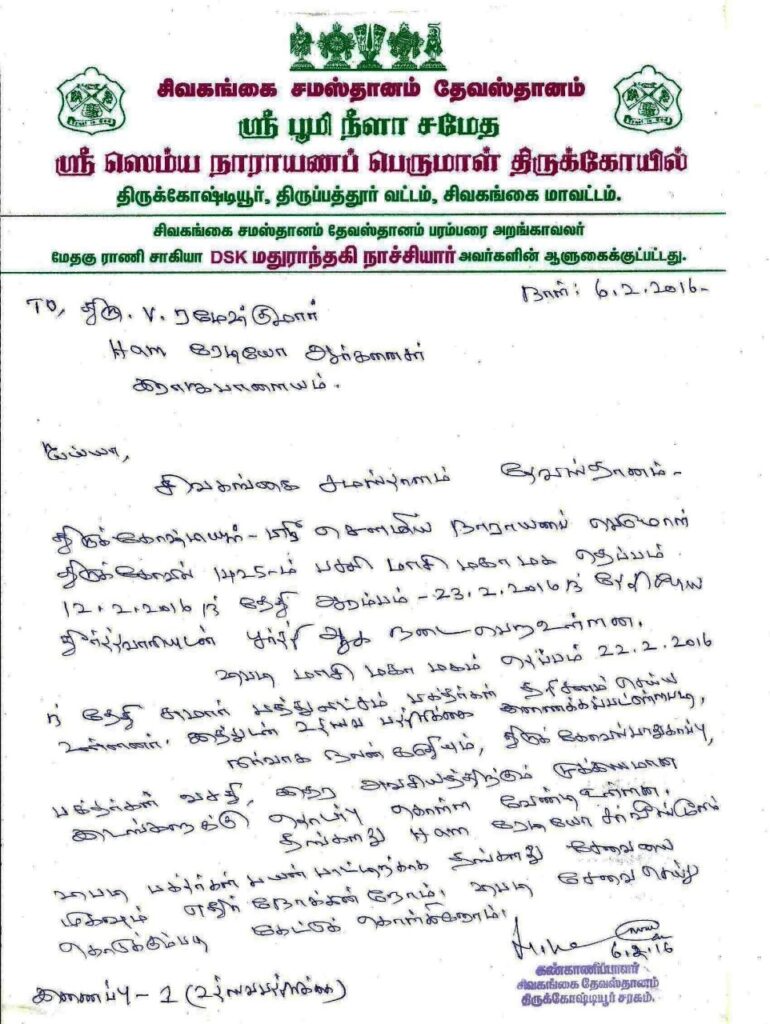 சிவகங்கை சமஸ்தானம் தேவஸ்தானம்
ஸ்ரீ பூமி நீளா சமேத
ஸ்ரீ ஸெம்ய நாராயணப் பெருமாள் திருக்கோயில்
திருக்கோஷ்டியூர், திருப்பத்தூர் வட்டம், சிவகங்கை மாவட்டம்.
சிவகங்கை சமஸ்தானம் தேவஸ்தானம் பரம்பரை அறங்காவலர்
மேதகு ராணி சாகியா DSK மதுராந்தகி நாச்சியார் அவர்களின் ஆளுகைக்குட்பட்டது.
நாள்: 6.2.2016-
TO, திரு. V. ரமேஷ்குமார்
Ham ரேடியோ ஆர்கனைசர்
ஐயா,
சிவகங்கை சமஸ்தானம் தேவஸ்தானம் -
திருக்கோஷ்டியூர் - ஸ்ரீ சௌமிய நாராயணப் பெருமாள்
திருக்கோவில் 1425-ம் பசலி மாசி மகா மக தெப்பம்
12.2.2016ந் தேதி ஆரம்பம் - 23.2.2016ந் தேதி
தீர்த்தவாரியுடன் பூர்த்தி ஆக நடைபெறஉள்ளன.
மாசி மகா மகம் தெப்பம் 22.2.2016
ந் தேதி சுமார் பத்துலட்சம் பக்தர்கள் தரிசனம் செய்ய
உள்ளனர். இத்துடன் உற்சவ பத்திரிக்கை இணைக்கப்பட்டுள்ளபடி,
நிர்வாக நலன் கருதியும், திருக்கோவில் பாதுகாப்பு,
பக்தர்கள் வசதி, இதர அவசியத்திற்கும் முக்கியமான
இடங்களுக்கு தொடர்பு கொள்ள வேண்டி உள்ளன.
தங்களது Ham ரேடியோ
பக்தர்கள் பயன்பாட்டிற்காக தங்களது சேவையை
மிகவும் எதிர் நோக்கின்றோம். சேவை செய்து
கொடுக்கும்படி கேட்டுக் கொள்கிறோம்.
6.2.16
கண்காணிப்பாளர்
சிவகங்கை தேவஸ்தானம்
திருக்கோஷ்டியூர் சரகம்.
இணைப்பு - 1 (உற்சவபத்திரிக்கை)